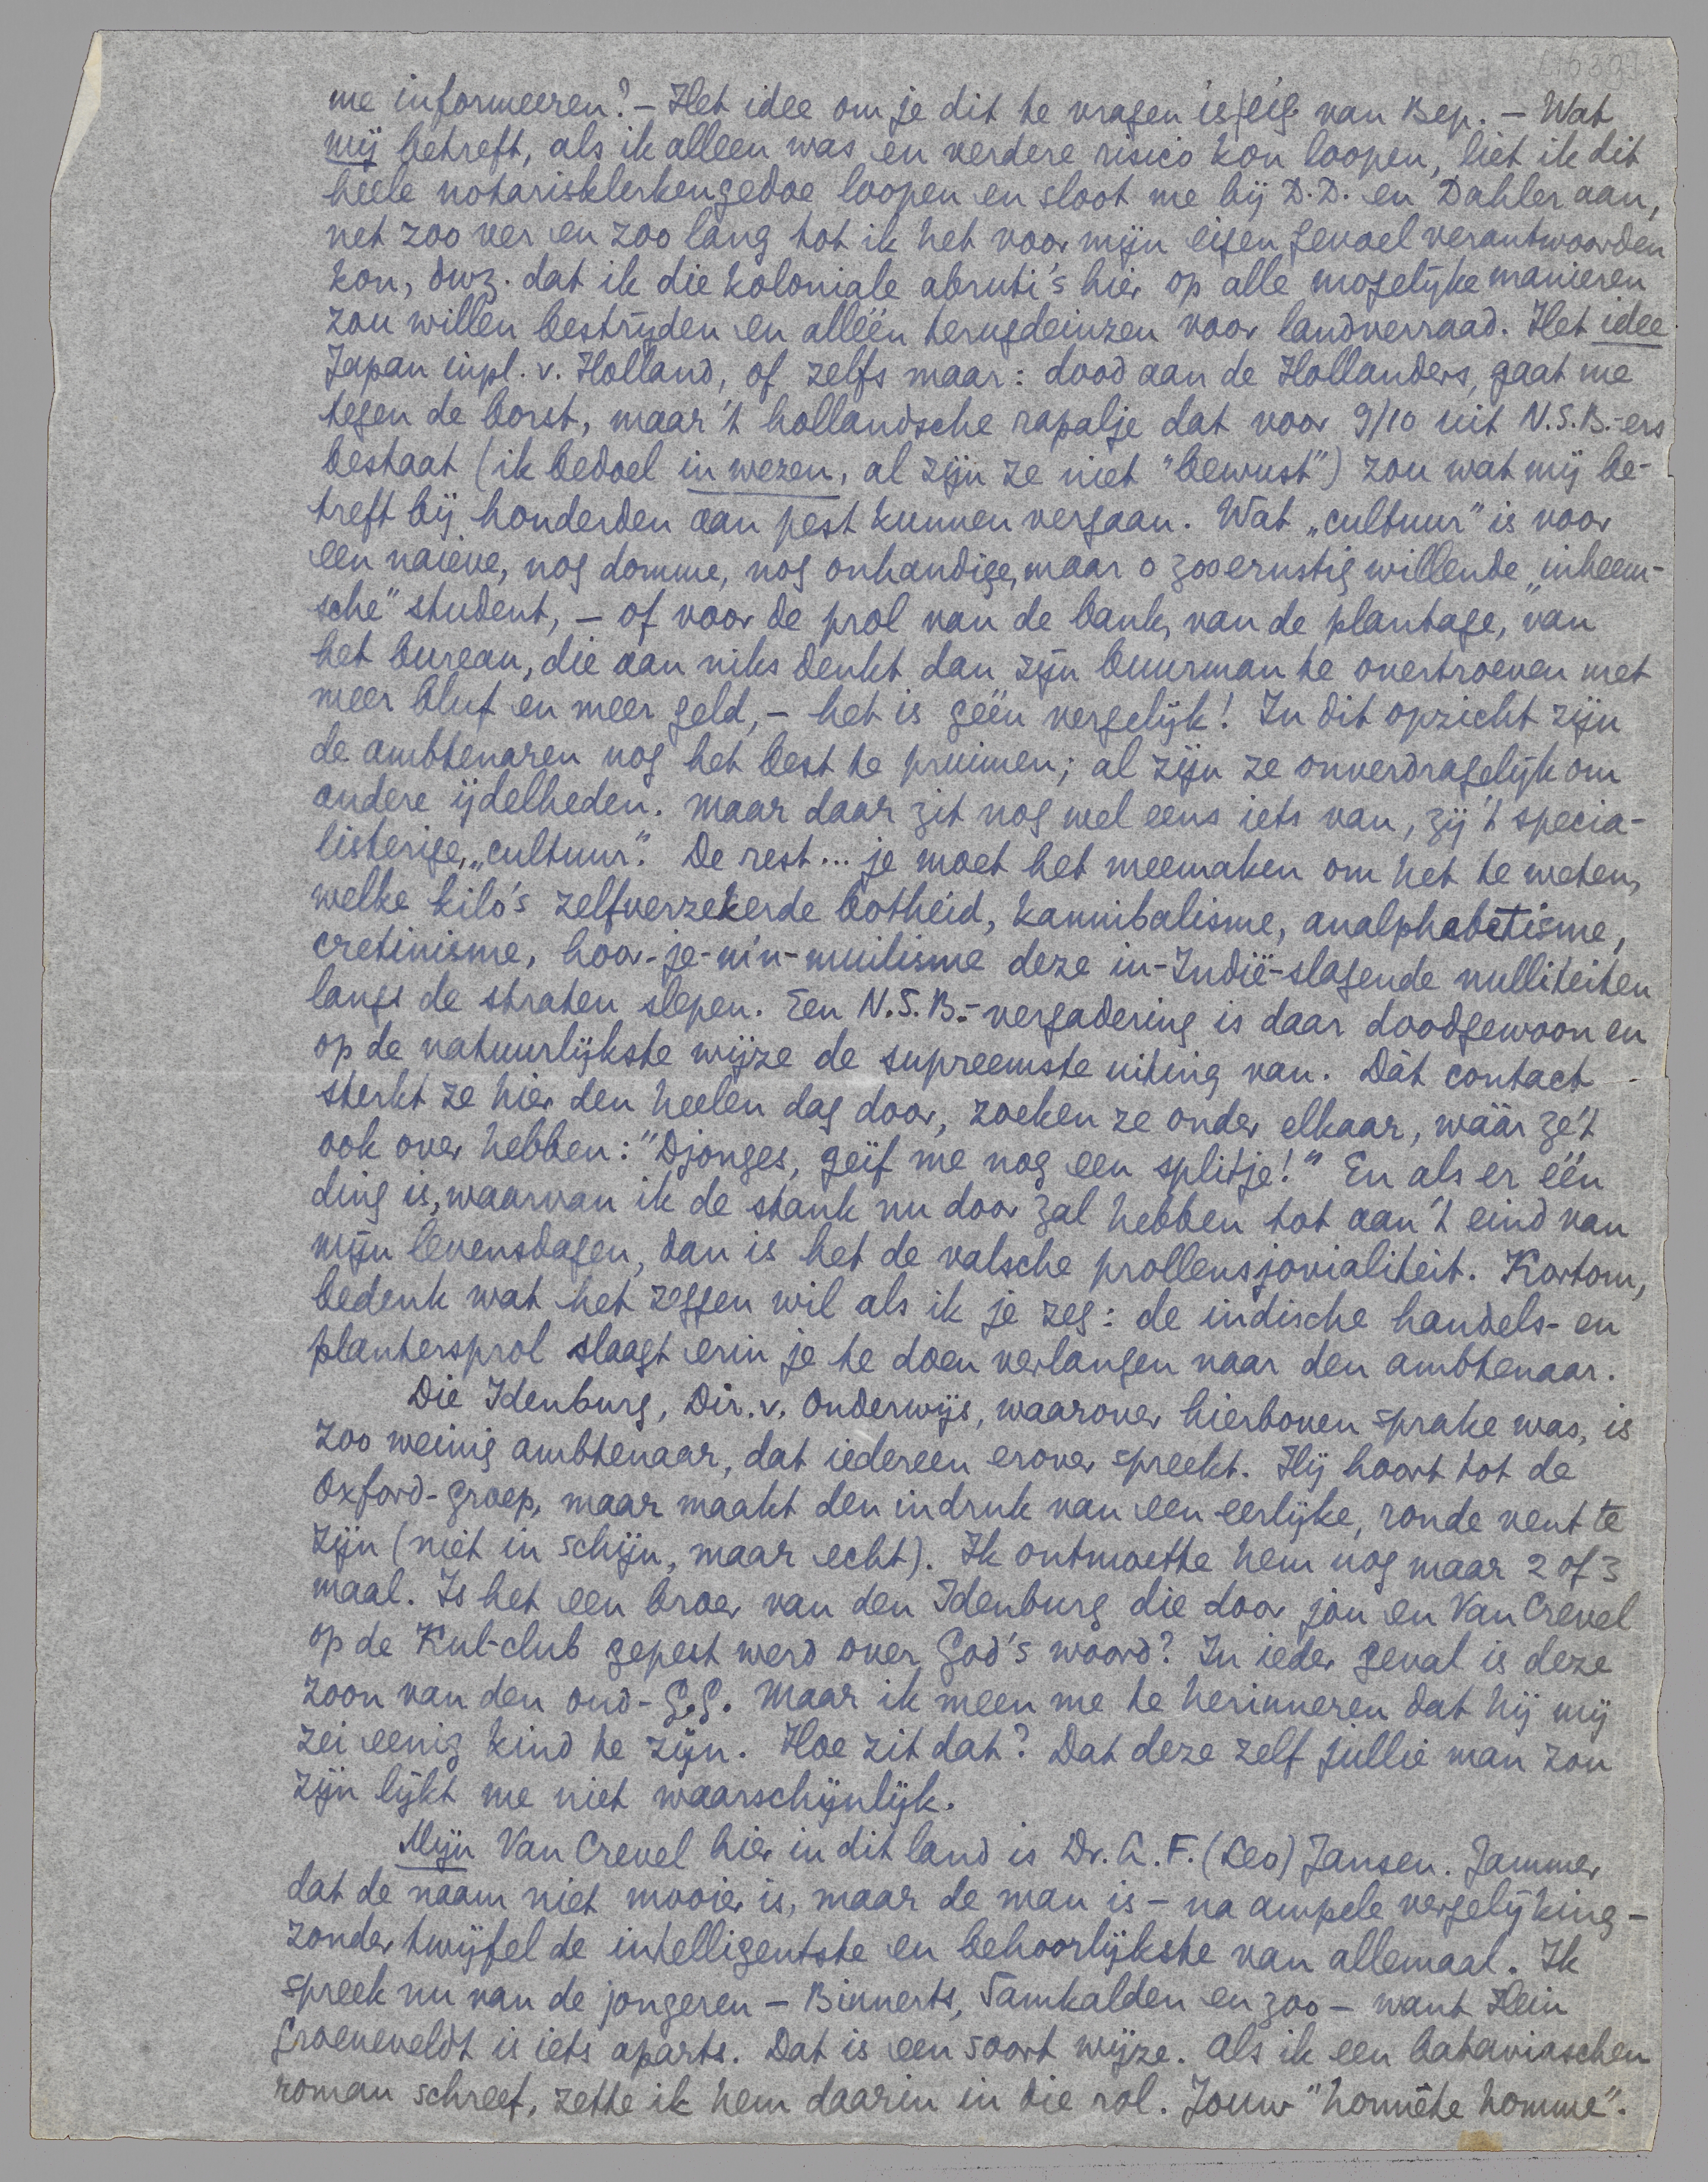 me informeeren? – Het idee om je dit te vragen is eig. van Bep. – Wat
mij betreft, als ik alleen was en verdere risico kon loopen, liet ik dit
heele notarisklerkengedoe loopen en sloot me bij D.D. en Dahler aan,
net zoo ver en zoo lang tot ik het voor mijn eigen gevoel verantwoorden
kon, dwz. dat ik die koloniale abruti's hier op alle mogelijke manieren
zou willen bestrijden en alléén terugdeinzen voor landverraad. Het idee
Japan inpl. v. Holland, of zelfs maar: dood aan de Hollanders, gaat me
tegen de borst, maar 't hollandsche rapalje dat voor 9/10 uit N.S.B.-ers
bestaat (ik bedoel in wezen, al zijn ze niet "bewust") zou wat mij be-
treft bij honderden aan pest kunnen vergaan. Wat „cultuur" is voor
een naieve, nog domme, nog onhandige, maar o zoo ernstig willende „inheem-
sche" student, – of voor de prol van de bank, van de plantage, van
het bureau, die aan niks denkt dan zijn buurman te overtroeven met
meer bluf en meer geld, – het is géén vergelijk! In dit opzicht zijn
de ambtenaren nog het best te pruimen; al zijn ze onverdragelijk om
andere ijdelheden. Maar daar zit nog wel eens iets van, zij 't specia-
listerige, „cultuur". De rest... je moet het meemaken om het te weten,
welke kilo's zelfverzekerde botheid, kannibalisme, analphabetisme,
cretinisme, hoor-je-m'n-muilisme deze in-Indië-slagende nulliteiten
langs de straten slepen. Een N.S.B.-vergadering is daar doodgewoon en
op de natuurlijkste wijze de supreemste uiting van. Dàt contact
sterkt ze hier den heelen dag door, zoeken ze onder elkaar, wáár ze 't
ook over hebben: "Djonges, geif me nog een splitje!" En als er één
ding is, waarvan ik de stank nu door zal hebben tot aan 't eind van
mijn levensdagen, dan is het de valsche prollensjovialiteit. Kortom,
bedenk wat het zeggen wil als ik je zeg: de indische handels- en
plantersprol slaagt erin je te doen verlangen naar den ambtenaar.
Die Idenburg, Dir. v. Onderwijs, waarover hierboven sprake was, is
zoo weinig ambtenaar, dat iedereen erover spreekt. Hij hoort tot de
Oxford-groep, maar maakt den indruk van een eerlijke, ronde vent te
zijn (niet in schijn, maar echt). Ik ontmoette hem nog maar 2 of 3
maal. Is het een broer van den Idenburg die door jou en Van Crevel
op de Kul-club gepest werd over God's woord? In ieder geval is deze
zoon van den oud-G.G. Maar ik meen me te herinneren dat hij mij
zei eenig kind te zijn. Hoe zit dat? Dat deze zelf jullie man zou
zijn lijkt me niet waarschijnlijk.
Mijn Van Crevel hier in dit land is Dr. A. F. (Leo) Jansen. Jammer
dat de naam niet mooier is, maar de man is – na ampele vergelijking –
zonder twijfel de intelligentste en behoorlijkste van allemaal. Ik
spreek nu van de jongeren – Binnerts, Samkalden en zoo – want Hein
Groeneveldt is iets aparts. Dat is een soort wijze. Als ik een bataviaschen
roman schreef, zette ik hem daarin in die rol. Jouw "honnête homme".